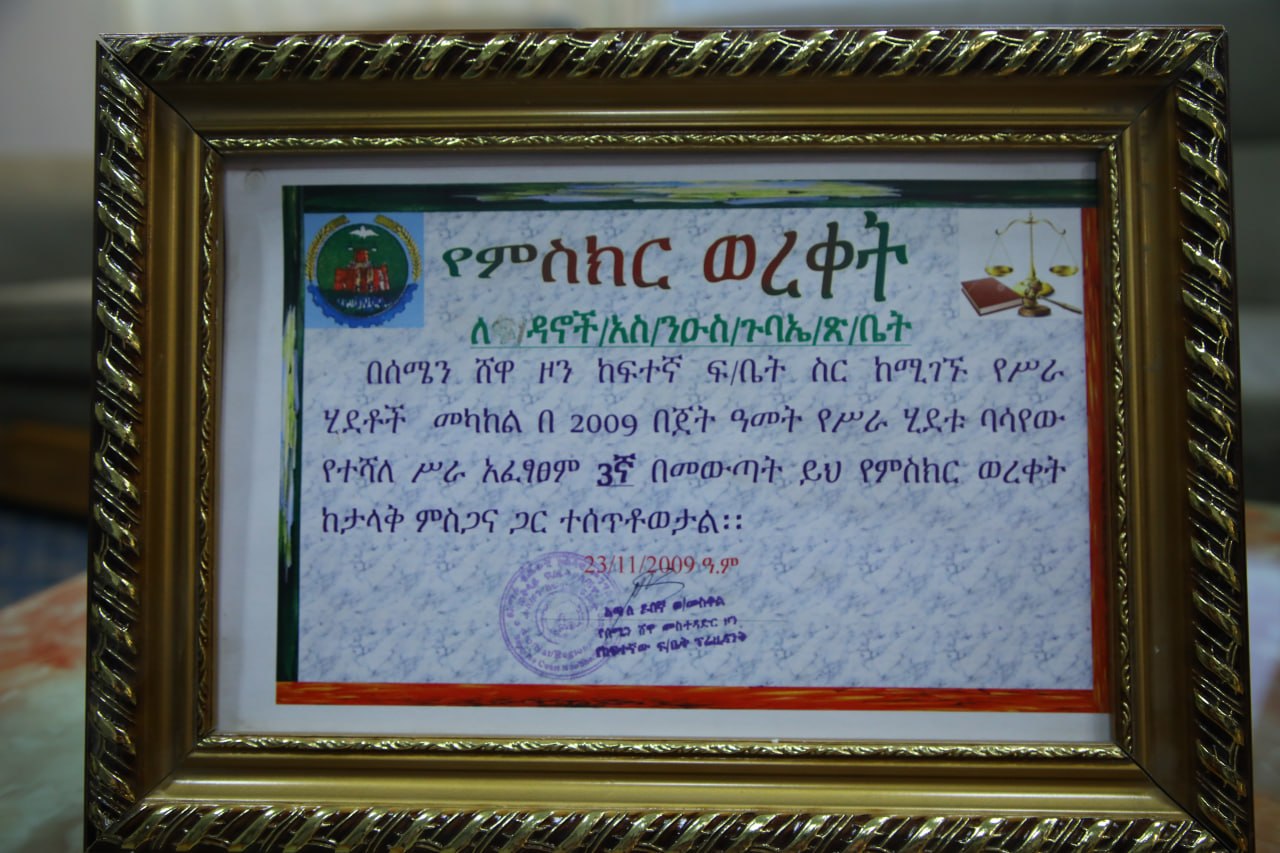 የምስክር ወረቀት
ለ /ዳኖች/አስ/ንዑስ/ጉባኤ/ጽ/ቤት
በሰሜን ሸዋ ዞን ከፍተኛ ፍ/ቤት ስር ከሚገኙ የሥራ
ሂደቶች መካከል በ 2009 በጀት ዓመት የሥራ ሂደቱ ባሳየው
የተሻለ ሥራ አፈፃፀም 3ኛ በመውጣት ይህ የምስክር ወረቀት
ከታላቅ ምስጋና ጋር ተሰጥቶወታል፡፡
23/11/2009 ዓ.ም
ወ/መስቀል
የሰሜን ሸዋ መስተዳድር ዞን
የከፍተኛው ፍ/ቤት ፕሬዚዳንት